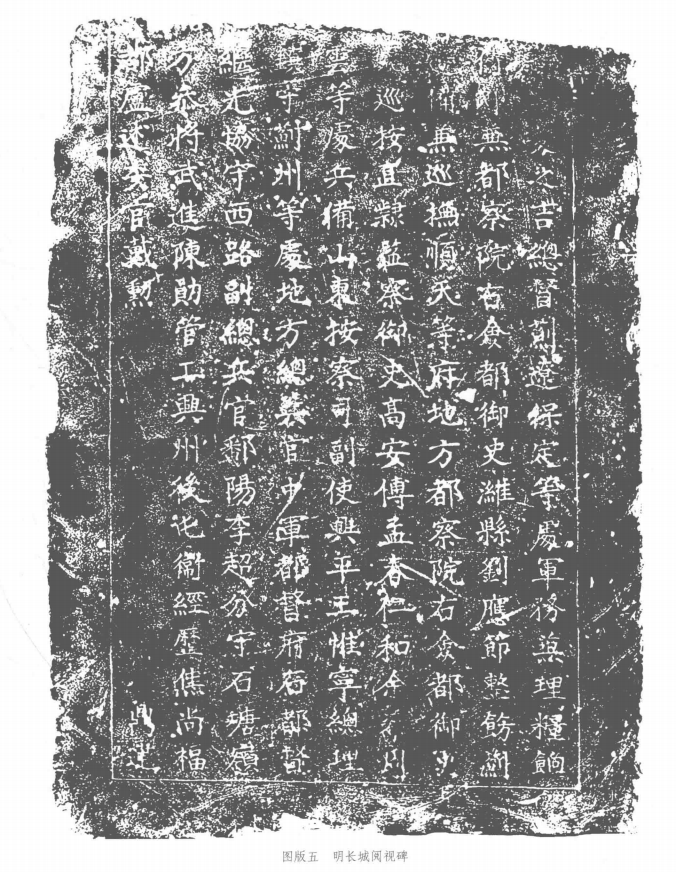 吉總督薊遼保定等處軍務兼理糧餉
兼都察院右僉都御史濰縣劉應節整飭薊
兼巡撫順天等府地方都察院右僉都御史
巡按直隸監察御史高安傅孟春仁和余
雲等處兵備山東按察司副使興平王惟寧總理
守薊州等處地方總兵官中軍都督府右都督
繼光協守西路副總兵官鄱陽李超分守石塘嶺
方參將武進陳勛管工興州後屯衛經歷焦尚福
官戴勳 鼎建
图版五 明长城阅视碑